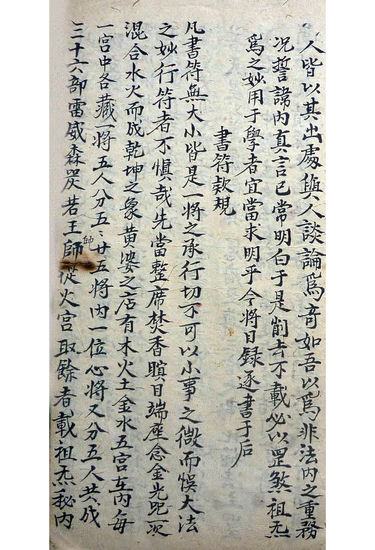 人皆以其出處與人談論爲奇如吾以爲非法内之重務
况誓諱内真言已常明白于是削去不載必以罡煞祖炁
爲之妙用于學者宜當求明乎今將目録逐書于后
書符款規
凡書符無大小皆是一將之承行切不可以小事之微而悞大法
之妙行符者不慎哉先當整席焚香瞑目端座念金光咒次
混合水火而成乾坤之象黄婆之店有木火土金水五宫在内每
一宫中各藏一將五人分五五廿五將内一位心將又分五人共成
三十六部雷威森炅若王帥從火宫取餘者載祖炁秘内